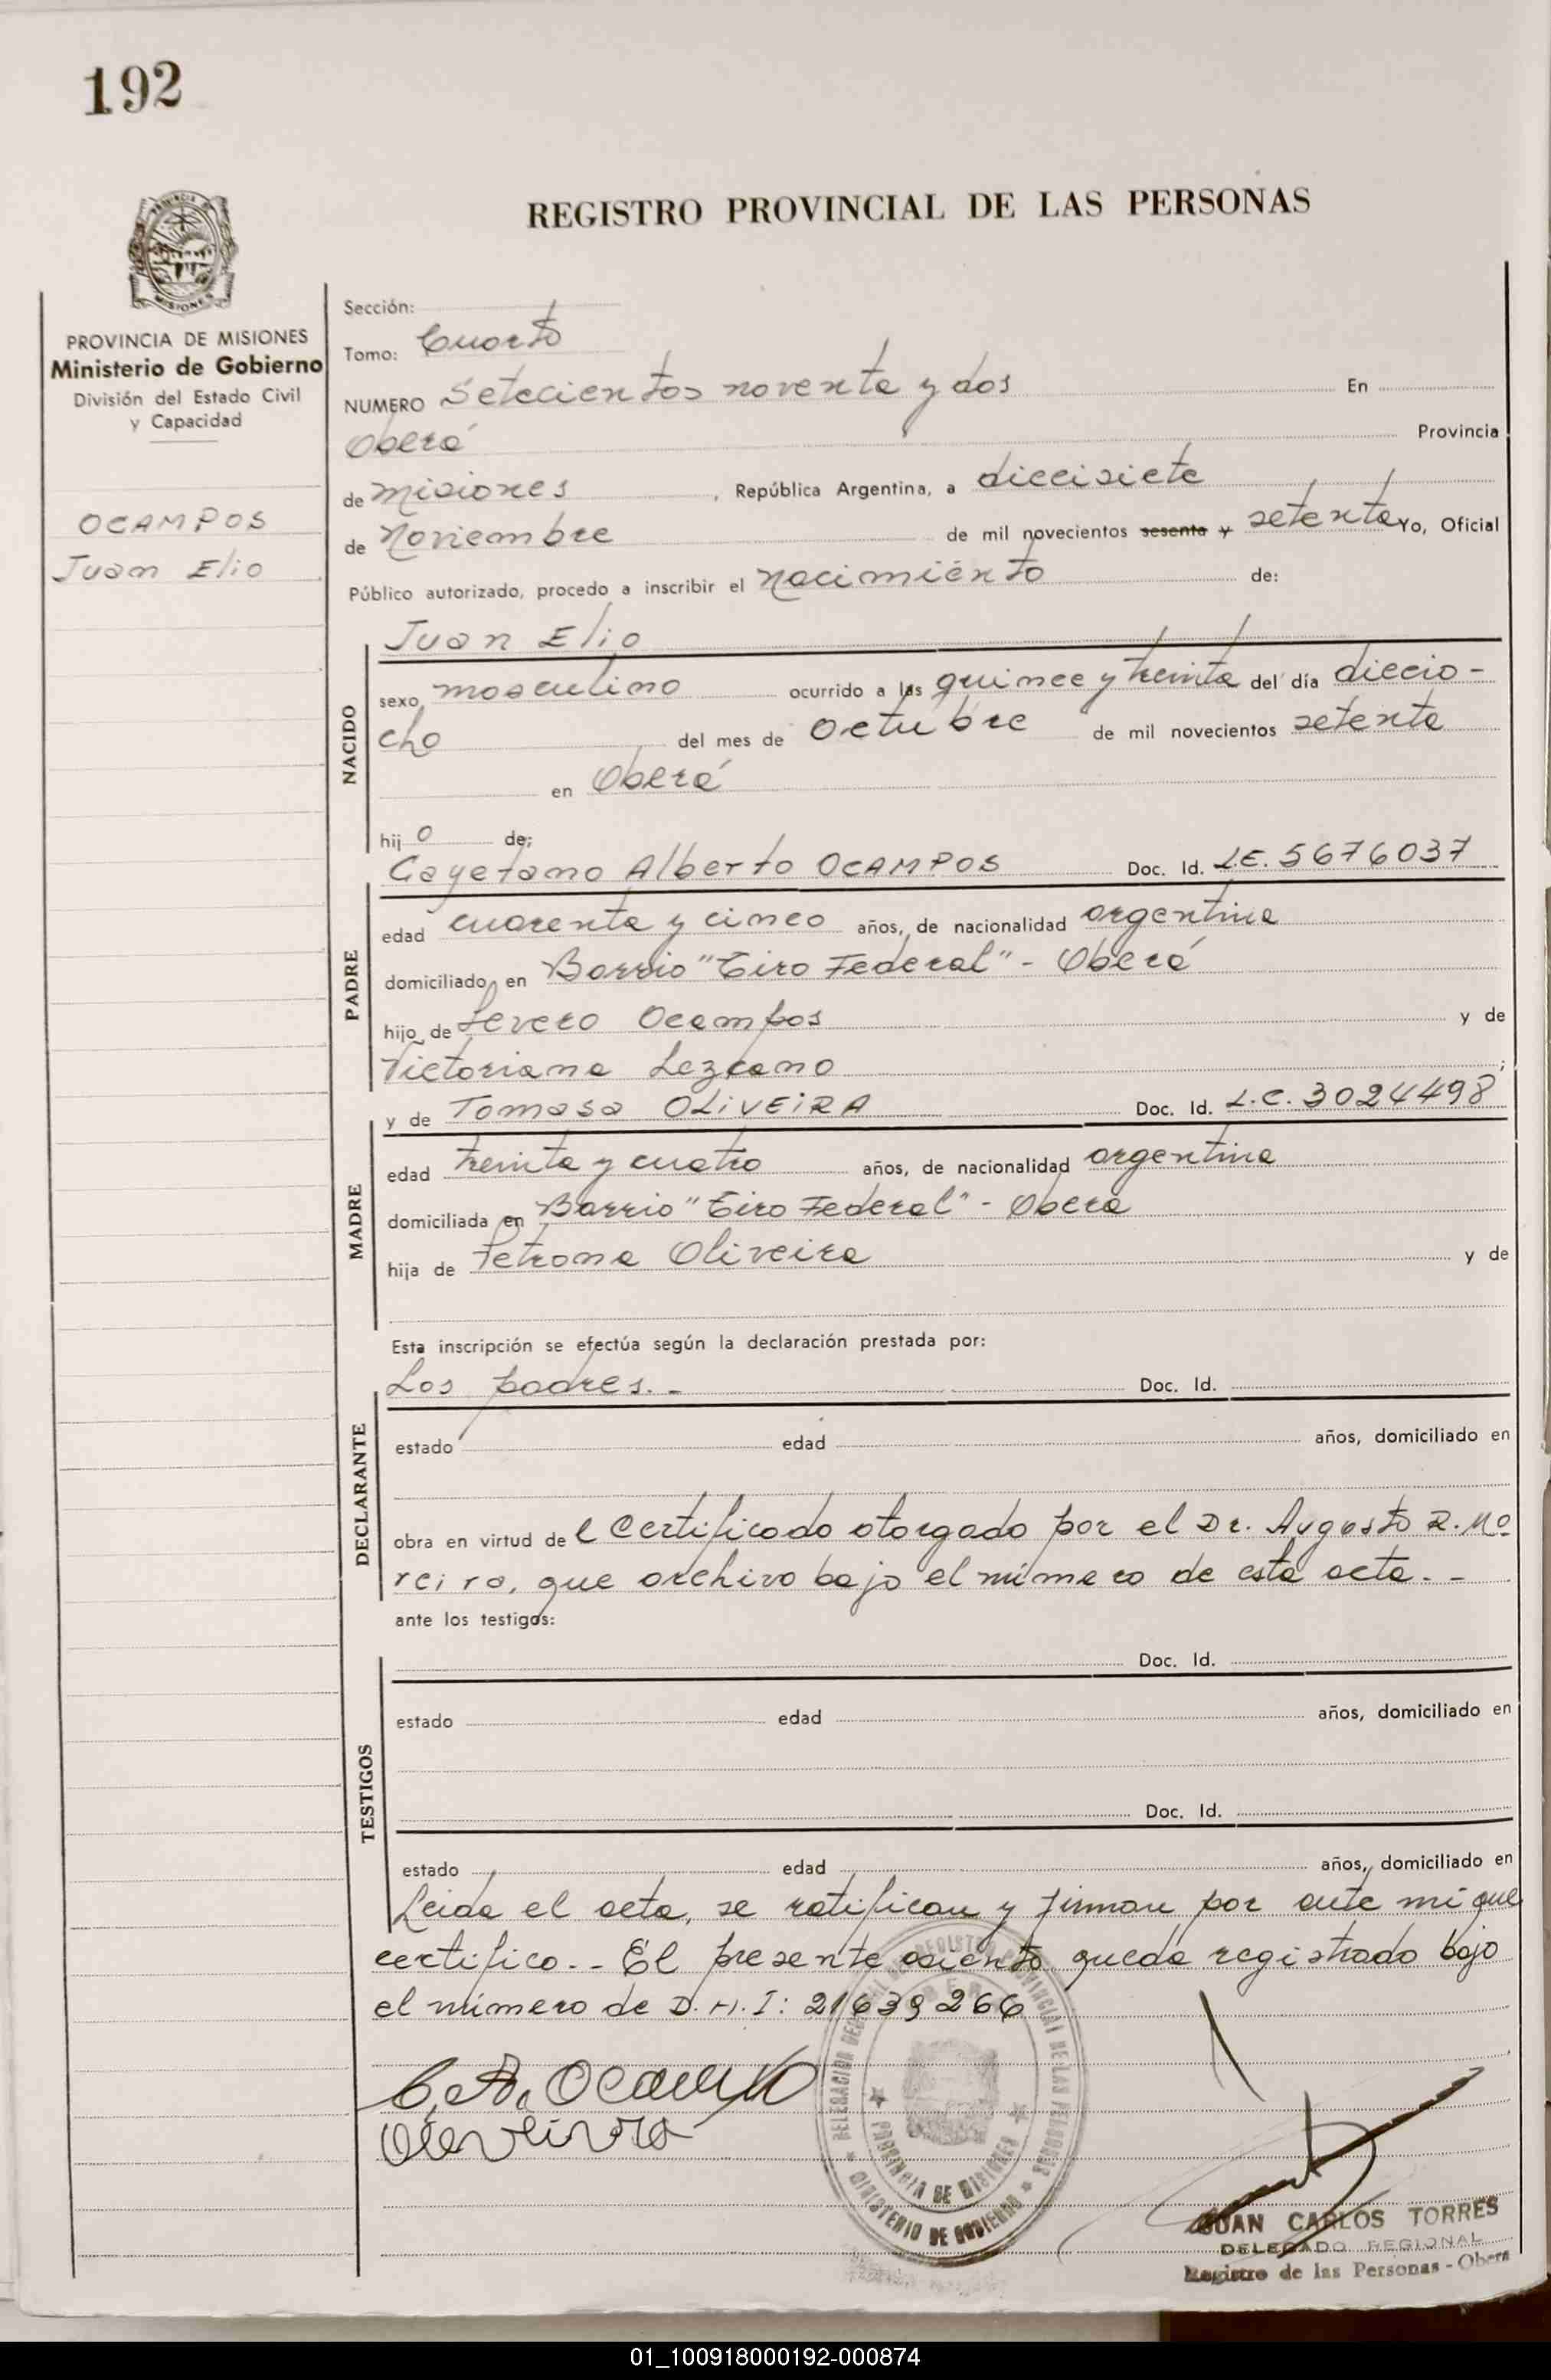 192
REGISTRO PROVINCIAL DE LAS PERSONAS
PROVINCIA DE MISIONES
Ministerio de Gobierno
División del Estado Civil
y Capacidad
OCAMPOS
Juan Elio
Sección:
Tomo: Cuarto
NUMERO Setecientos noventa y dos En
Oberá Provincia
de Misiones, República Argentina, a diecisiete
de Noviembre de mil novecientos sesenta y setenta Yo, Oficial
Público autorizado, procedo a inscribir el Nacimiento de:
Juan Elio
NACIDO
sexo masculino ocurrido a las quince y treinta del día diecio-
cho del mes de Octubre de mil novecientos setenta
en Oberá
hijo de:
Cayetano Alberto OCAMPOS Doc. Id. L.E. 5676037
PADRE
edad cuarenta y cinco años, de nacionalidad argentina
domiciliado en Barrio "Tiro Federal" - Oberá
hijo de Severo Ocampos y de
Victoriana Lezcano;
y de Tomasa OLiVEiRA Doc. Id. L.C. 3024498
MADRE
edad treinta y cuatro años, de nacionalidad argentina
domiciliada en Barrio "Tiro Federal" - Obera
hija de Petrona Oliveira y de
Esta inscripción se efectúa según la declaración prestada por:
Los padres.- Doc. Id.
DECLARANTE
estado edad años, domiciliado en
obra en virtud del Certificado otorgado por el Dr. Augusto R. Mo
reira, que archivo bajo el número de esta acta.-
ante los testigos:
Doc. Id.
TESTIGOS
estado edad años, domiciliado en
Doc. Id.
estado edad años, domiciliado en
Leida el acta, se ratifican y firman por ante mi que
certifico.- El presente asiento queda registrado bajo
el número de D.N.I: 21639266
C. A. Ocampo
Oliveira
PROVINCIA DE MISIONES
MINISTERIO DE GOBIERNO
JUAN CARLOS TORRES
DELEGADO REGIONAL
Registro de las Personas - Obera
01_100918000192-000874